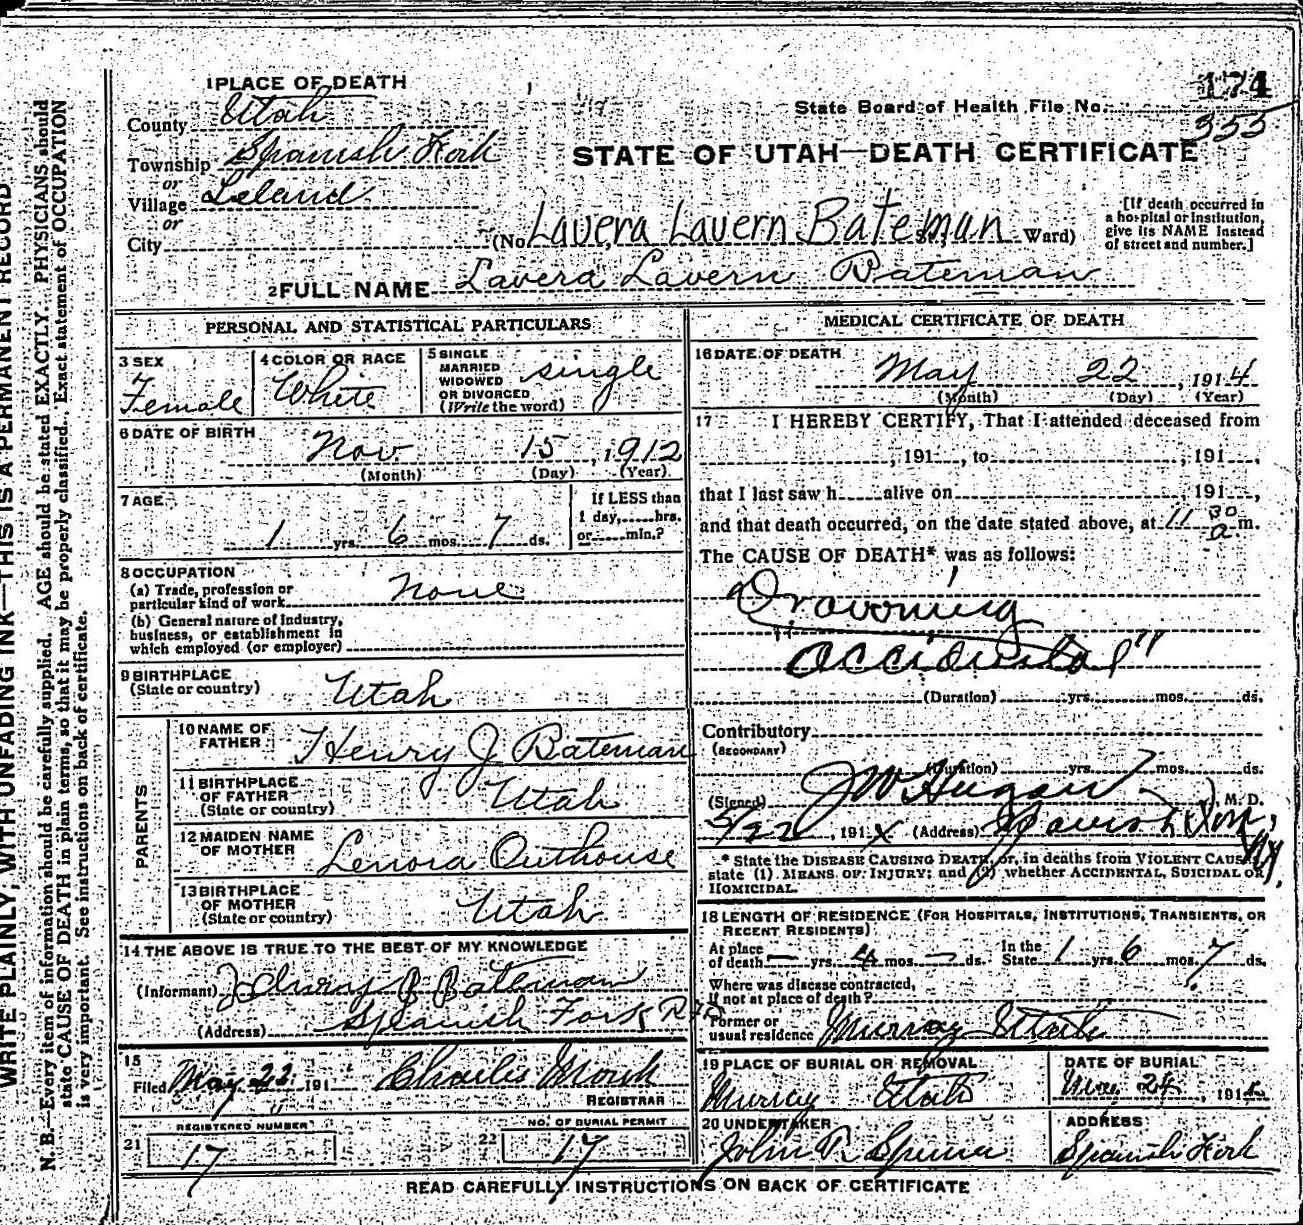 174
State Board of Health File No. 353
STATE OF UTAH—DEATH CERTIFICATE
1 PLACE OF DEATH
County Utah
Township Spanish Fork
or
Village Leland
or
City
(No. Lavera Lavern Bateman St., Ward)
[If death occurred in
a hospital or institution,
give its NAME instead
of street and number.]
2 FULL NAME Lavera Lavern Bateman
PERSONAL AND STATISTICAL PARTICULARS
3 SEX
Female
4 COLOR OR RACE
White
5 SINGLE
MARRIED
WIDOWED
OR DIVORCED
(Write the word)
single
6 DATE OF BIRTH
Nov 15, 1912
(Month) (Day) (Year)
7 AGE
1 yrs. 6 mos. 7 ds.
If LESS than
1 day, hrs.
or min.?
8 OCCUPATION
(a) Trade, profession or
particular kind of work None
(b) General nature of industry,
business, or establishment in
which employed (or employer)
9 BIRTHPLACE
(State or country)
Utah
PARENTS
10 NAME OF
FATHER
Henry J Bateman
11 BIRTHPLACE
OF FATHER
(State or country)
Utah
12 MAIDEN NAME
OF MOTHER
Lenora Outhouse
13 BIRTHPLACE
OF MOTHER
(State or country)
Utah
14 THE ABOVE IS TRUE TO THE BEST OF MY KNOWLEDGE
(Informant) Henry J Bateman
(Address) Spanish Fork
15
Filed May 22 191 Charles Monk
REGISTRAR
REGISTERED NUMBER
21 17
NO. OF BURIAL PERMIT
22 17
MEDICAL CERTIFICATE OF DEATH
16 DATE OF DEATH
May 22, 1914
(Month) (Day) (Year)
17 I HEREBY CERTIFY, That I attended deceased from
, 191 , to , 191 ,
that I last saw h alive on , 191 ,
and that death occurred, on the date stated above, at 11 30 a. m.
The CAUSE OF DEATH* was as follows:
Drowning
"accidental"
(Duration) yrs. mos. ds.
Contributory
(SECONDARY)
(Duration) yrs. mos. ds.
(Signed) J W Hagan, M. D.
5/22, 191 (Address) Spanish Fork,
* State the DISEASE CAUSING DEATH, or, in deaths from VIOLENT CAUSES,
state (1) MEANS OF INJURY; and (2) whether ACCIDENTAL, SUICIDAL OR
HOMICIDAL.
18 LENGTH OF RESIDENCE (FOR HOSPITALS, INSTITUTIONS, TRANSIENTS, OR
RECENT RESIDENTS)
At place
of death — yrs. 4 mos. — ds.
In the
State 1 yrs. 6 mos. 7 ds.
Where was disease contracted,
if not at place of death?
Former or
usual residence Murray Utah
19 PLACE OF BURIAL OR REMOVAL
Murray Utah
DATE OF BURIAL
May 24, 191
20 UNDERTAKER
John
ADDRESS
Spanish Fork
READ CAREFULLY INSTRUCTIONS ON BACK OF CERTIFICATE
WRITE PLAINLY, WITH UNFADING INK—THIS IS A PERMANENT RECORD
N. B.—Every item of information should be carefully supplied. AGE should be stated EXACTLY. PHYSICIANS should
state CAUSE OF DEATH in plain terms, so that it may be properly classified. Exact statement of OCCUPATION
is very important. See instructions on back of certificate.